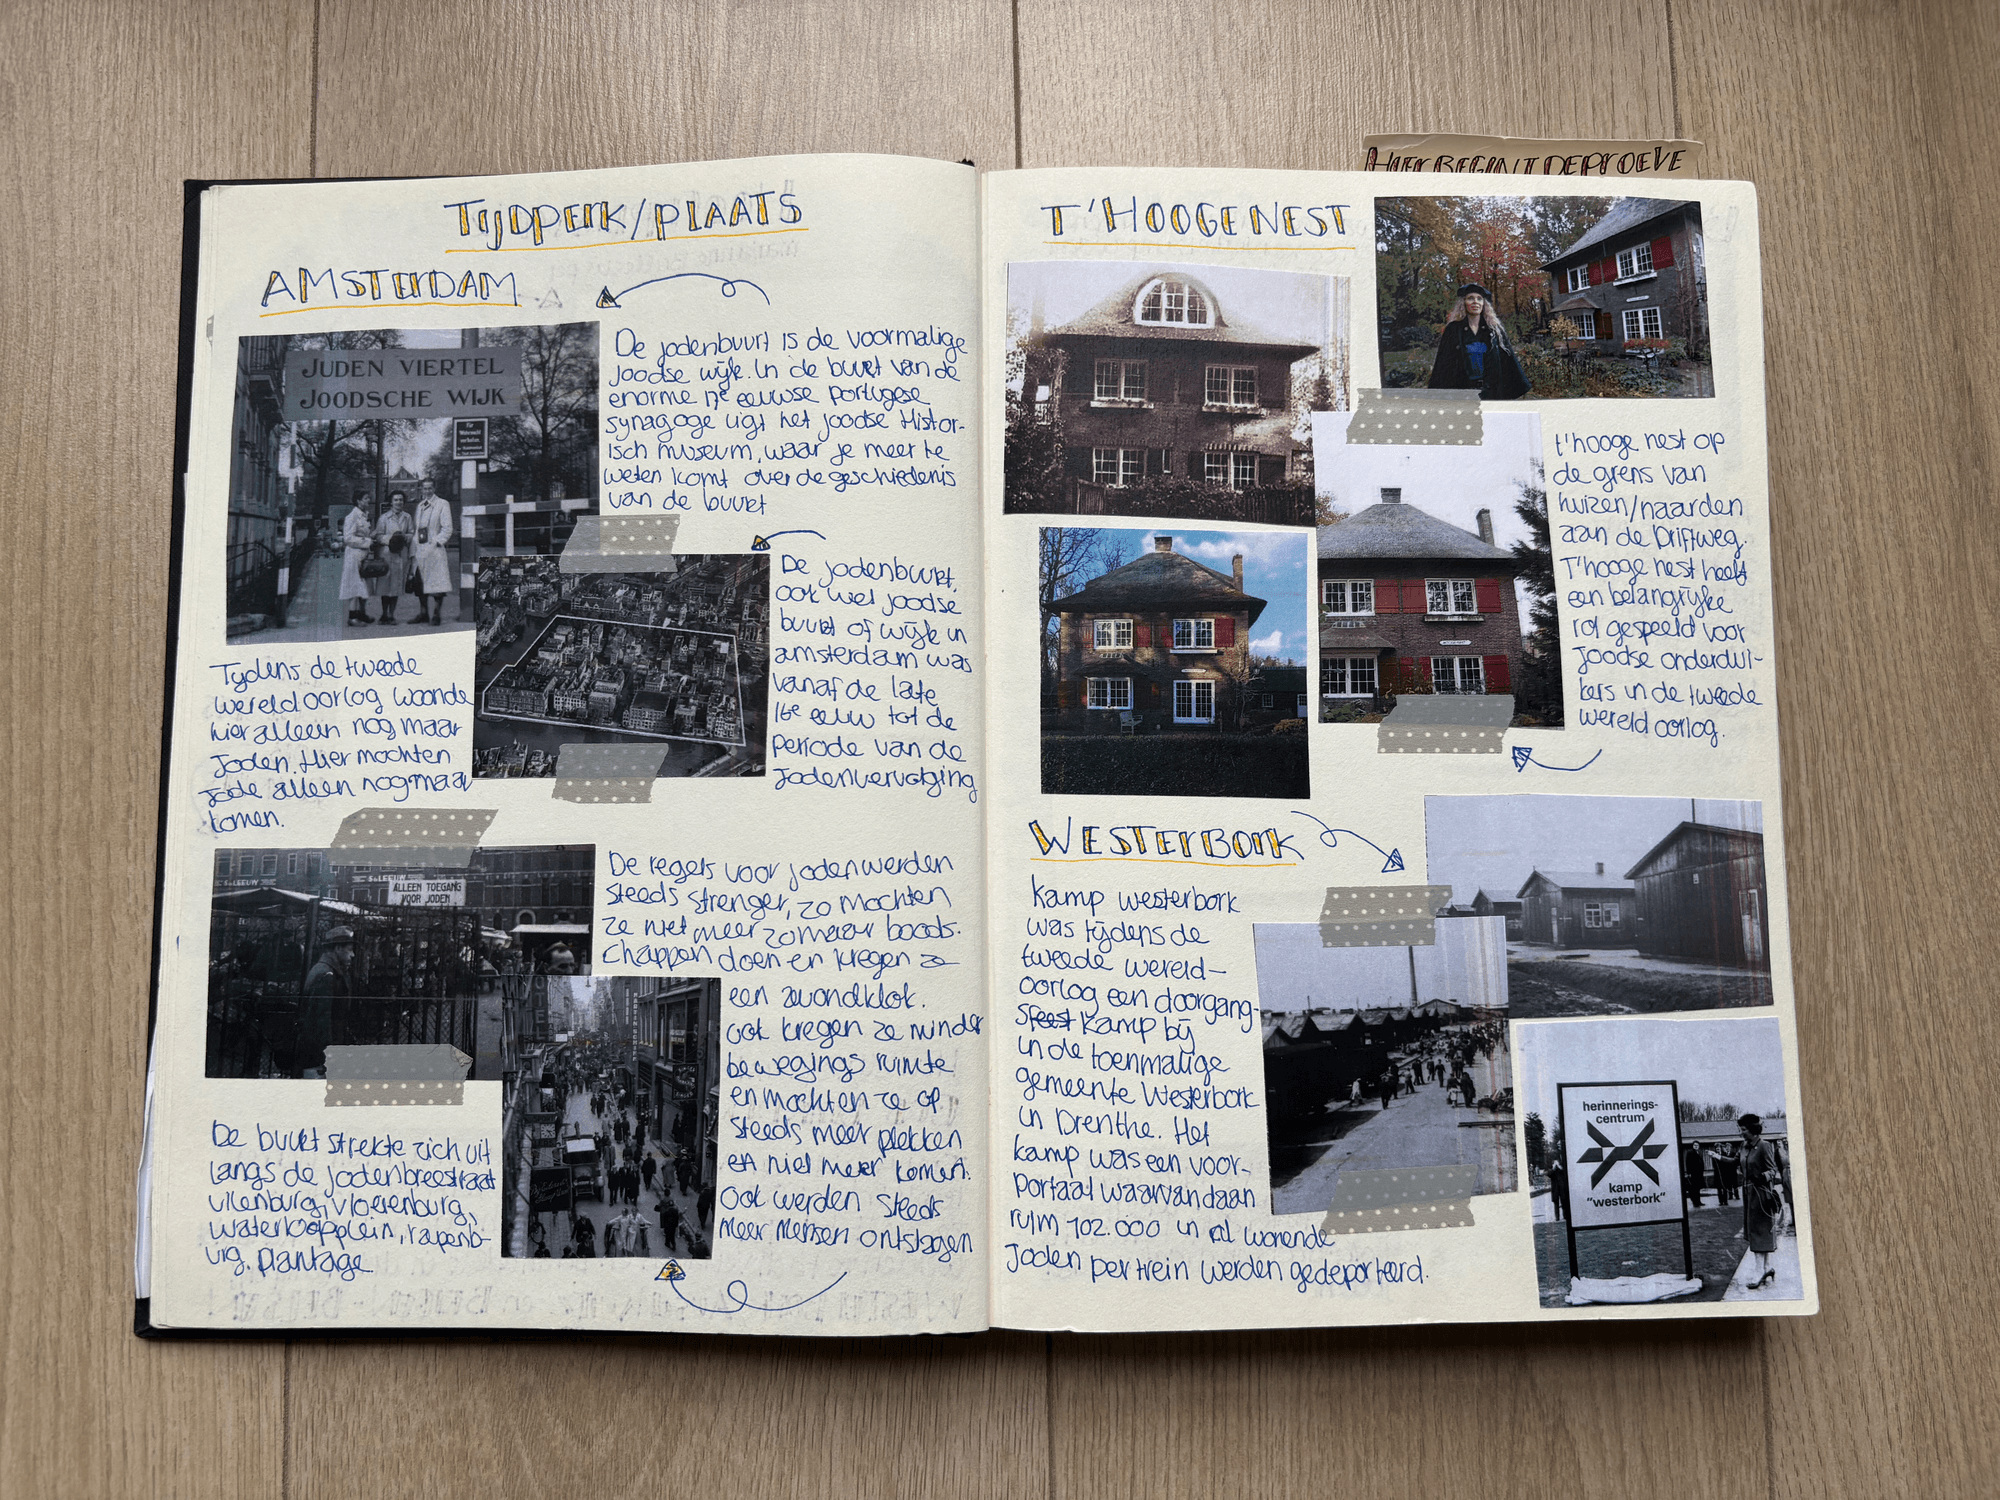 HIER BEGINT DE PROEVE
TIJDPERK/PLAATS
AMSTERDAM
JUDEN VIERTEL
JOODSCHE WIJK
De jodenbuurt is de voormalige
Joodse wijk. In de buurt van de
enorme 17e eeuwse Portugese
synagoge ligt het joodse Histor-
isch museum, waar je meer te
weten komt over de geschiedenis
van de buurt
De jodenbuurt,
ook wel joodse
buurt of wijk in
amsterdam was
vanaf de late
16e eeuw tot de
periode van de
Jodenvervolging
Tijdens de tweede
wereld oorlog woonde
hier alleen nog maar
Joden. Hier mochten
Jode alleen nog maar
komen.
S. LEEUW
ALLEEN TOEGANG
VOOR JODEN
De regels voor joden werden
steeds strenger, zo mochten
ze niet meer zomaar boods-
chappen doen en kregen ze
een avondklok.
ook kregen ze minder
bewegings ruimte
en mochten ze op
steeds meer plekken
niet meer komen.
ook werden steeds
meer mensen ontslagen
De buurt strekte zich uit
langs de jodenbreestraat
uilenburg, vloeienburg,
waterloopplein, rapenb-
urg, plantage
T'HOOGE NEST
t'hooge nest op
de grens van
huizen/naarden
aan de Driftweg.
T'hooge nest heeft
een belangrijke
rol gespeeld voor
Joodse onderdui-
kers in de tweede
wereld oorlog.
WESTERBORK
Kamp westerbork
was tijdens de
tweede wereld-
oorlog een doorgang-
s kamp bij
in de toenmalige
gemeente Westerbork
in Drenthe. Het
kamp was een voor-
portaal waarvandaan
ruim 102.000 in wonende
Joden per trein werden gedeporteerd.
herinnerings-
centrum
kamp
"westerbork"